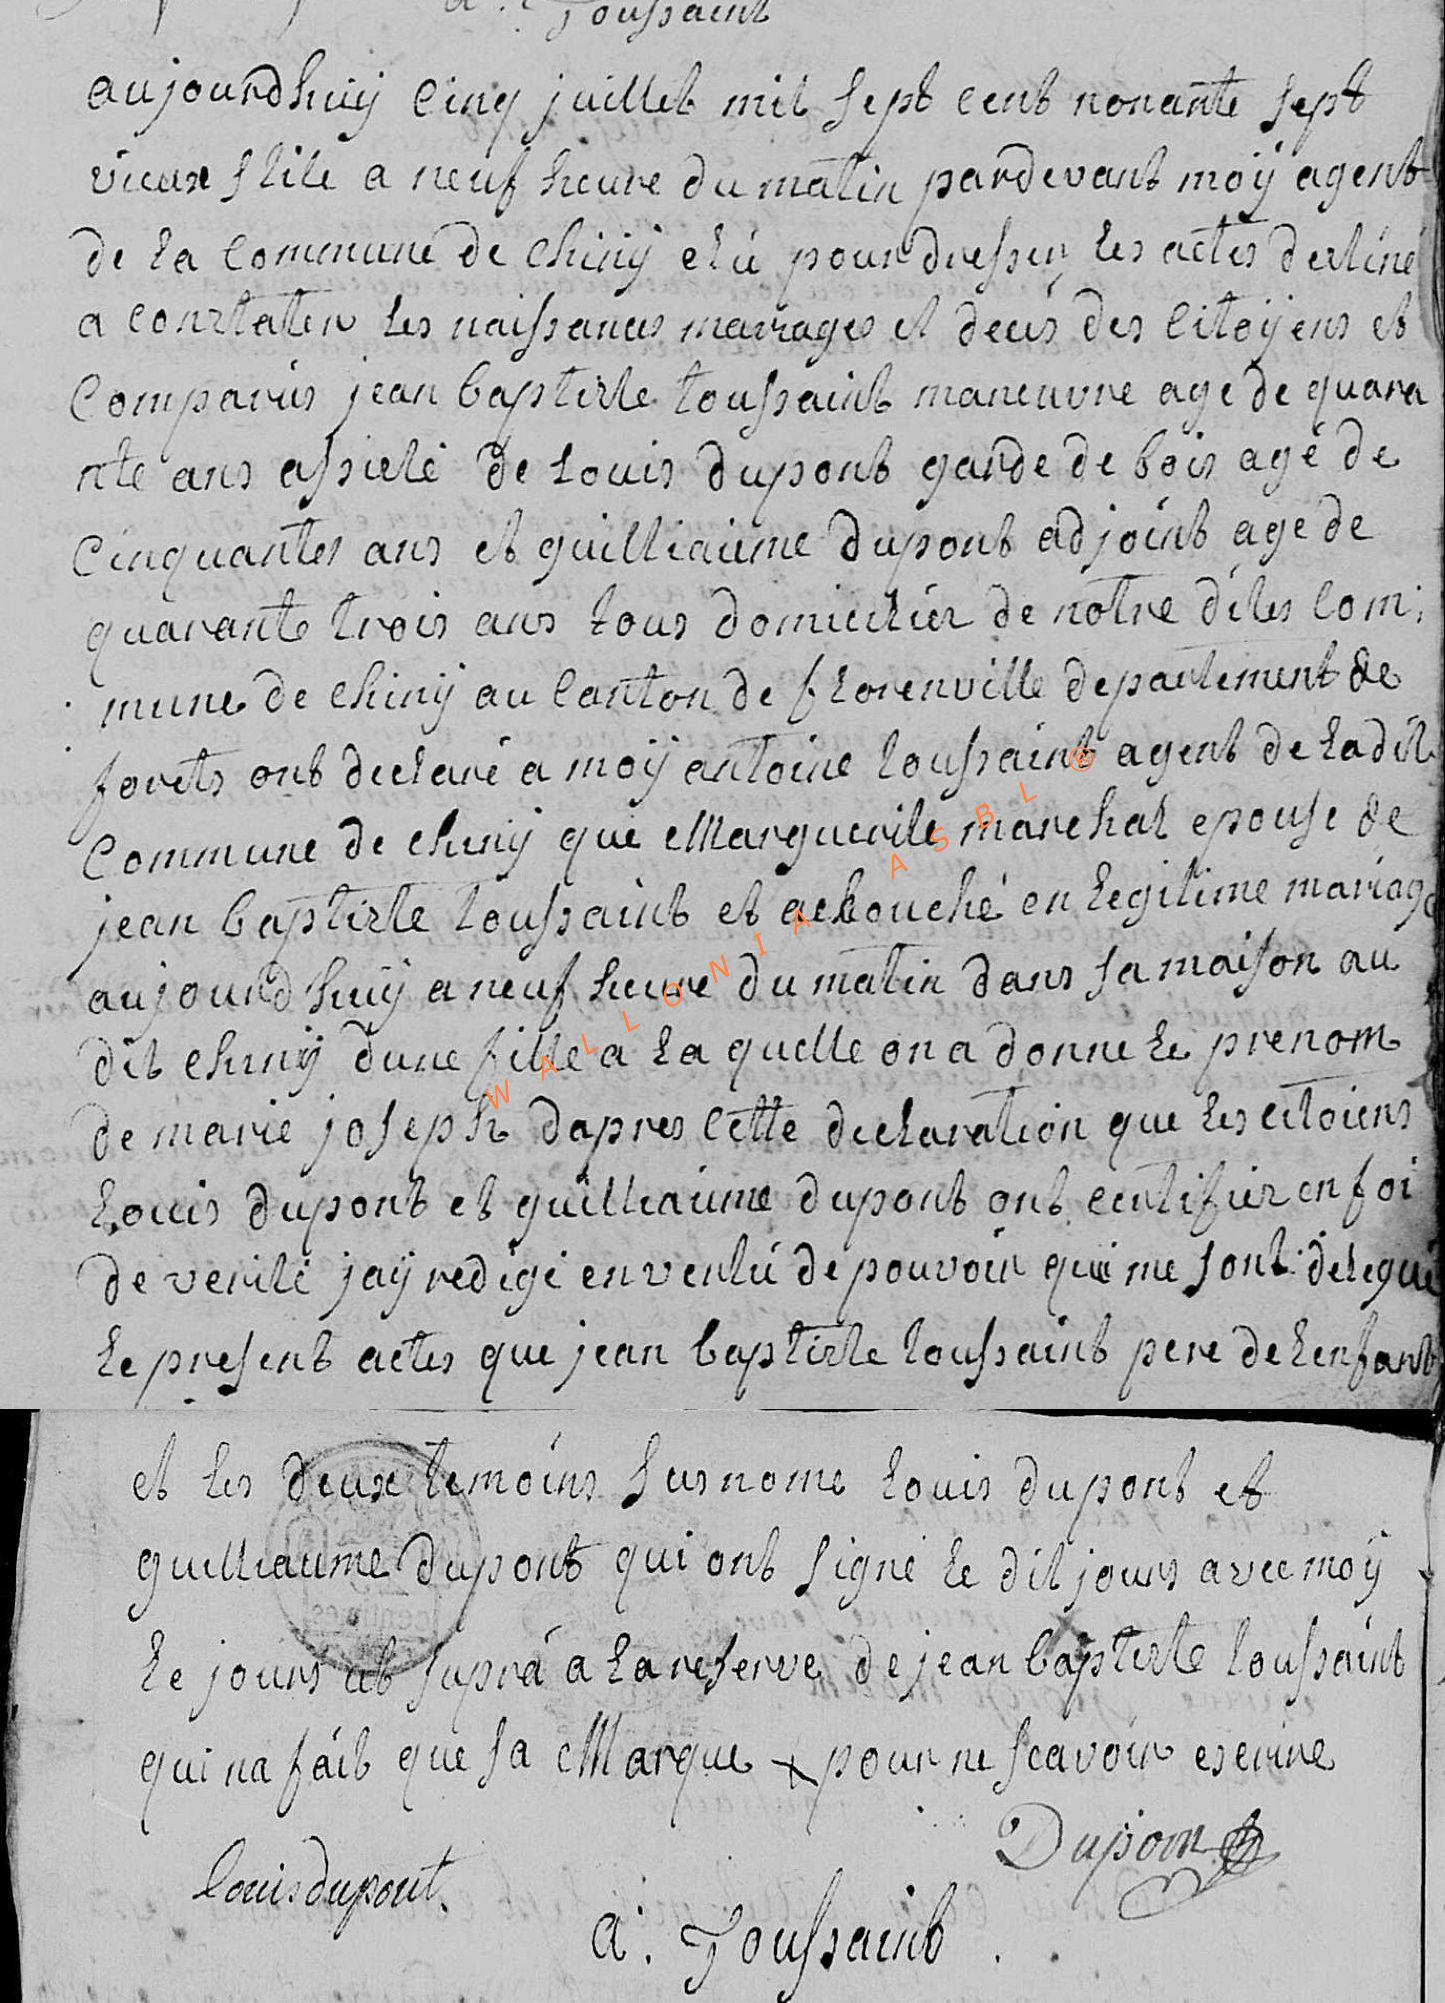 a. Toussaint
aujourdhuij cinq juillet mil sept cent nonante sept
vieux stile a neuf heure du matin pardevant moÿ agent
de la commune de chinij elú pour dresser les actes destiné
a constater les naissances mariages et decés des citoÿens et
comparús jean baptiste toussaint maneuvre age de quara
nte ans assisté de Louis dupont garde de bois agé de
cinquantes ans et guilliaume dupont adjoint age de
quarante trois ans tous domiciliéz de notre dites com;
mune de chinij au canton de florenville departement de
forets ont declaré a moÿ antoine toussaint agent de ladit
commune de chinij que Marguerite marchal epouse de
jean baptiste toussaint et acbouché en legitime mariage
aujourdhuij a neuf heure du matin dans sa maison au
dit chinij dune fille a la quelle on a donne le prenom
de marie joseph dapres cette declaration que les citoiens
Louis dupont et guilliaume dupont ont certifiéz en foi
de verité jaÿ redigé en vertú de pouvoir qui me sont delegué
le present actes que jean baptiste toussaint pere de lenfant
et les deux temoins susnome Louis dupont et
guilliaume dupont qui ont signé le dit jours avec moÿ
le jours ut supra a la reserve de jean baptiste toussaint
qui na fait que sa Marque + pour ne scavoir escrire
Dupon
Louis dupont.
a. Toussaint.
WALLONIA ASBL ®